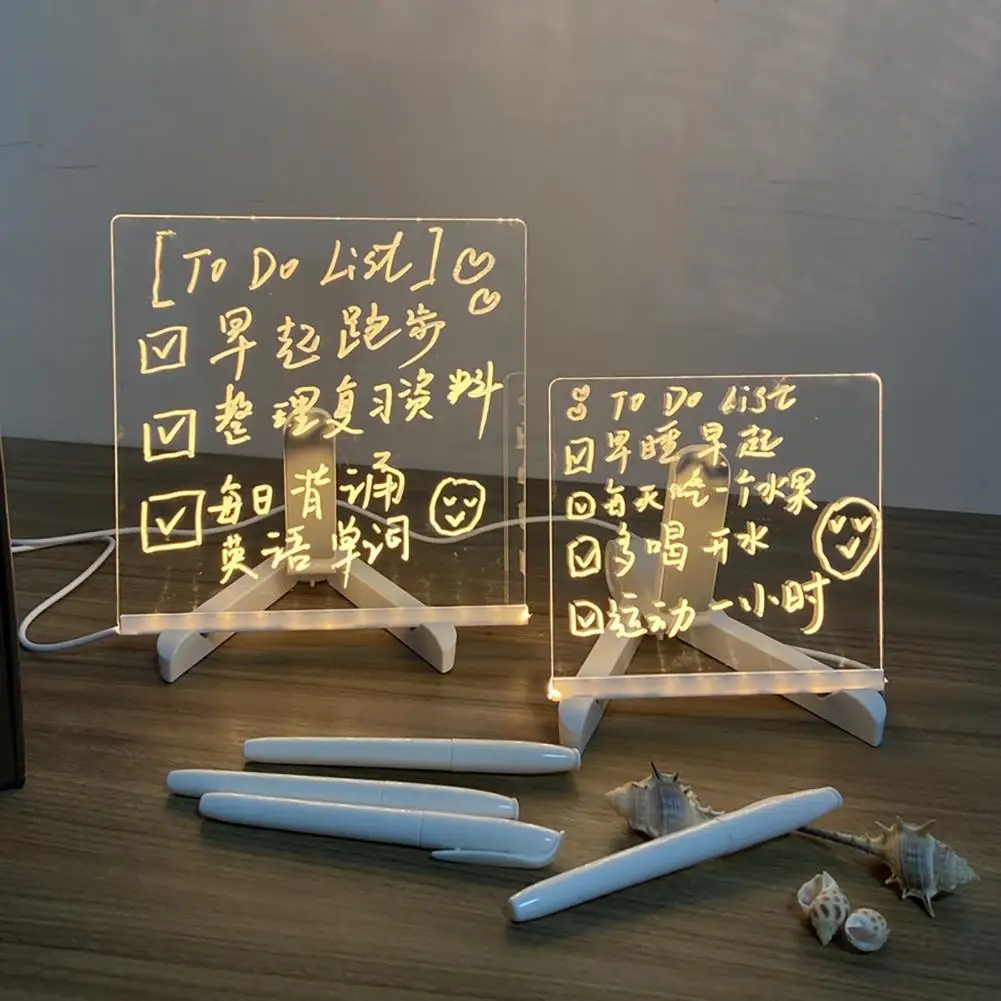 [To Do List]
早起跑步
整理复习资料
每日背诵
英语单词
To Do List
早睡早起
每天吃一个水果
多喝开水
运动一小时